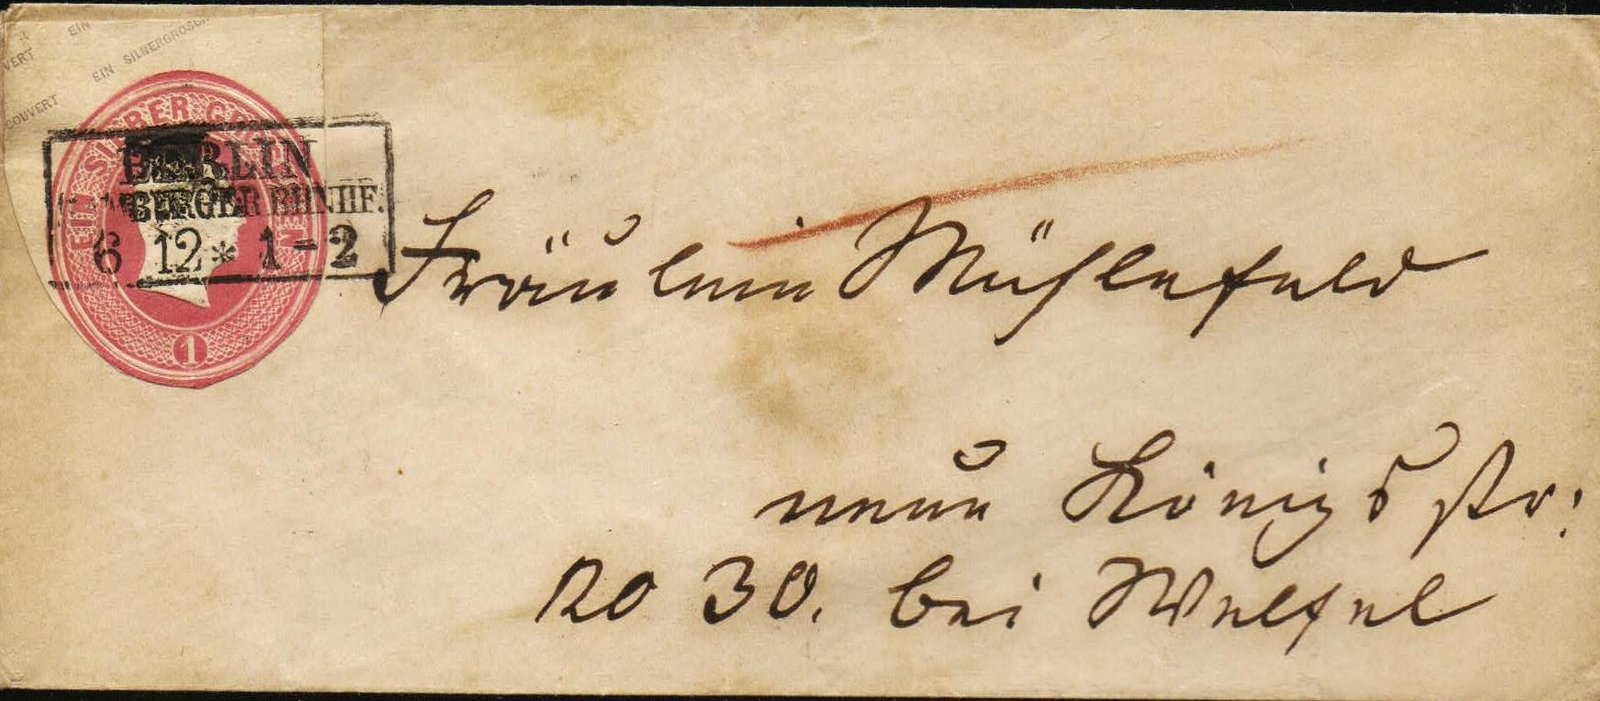 EIN
VERT EIN SILBERGROSC
COUVERT
EIN SILBER GR
BERLIN
BURGER BHNHF.
6 12 * 1-2
1
Fräulein Mühlefeld
neue Königsstr:
No 30. bei